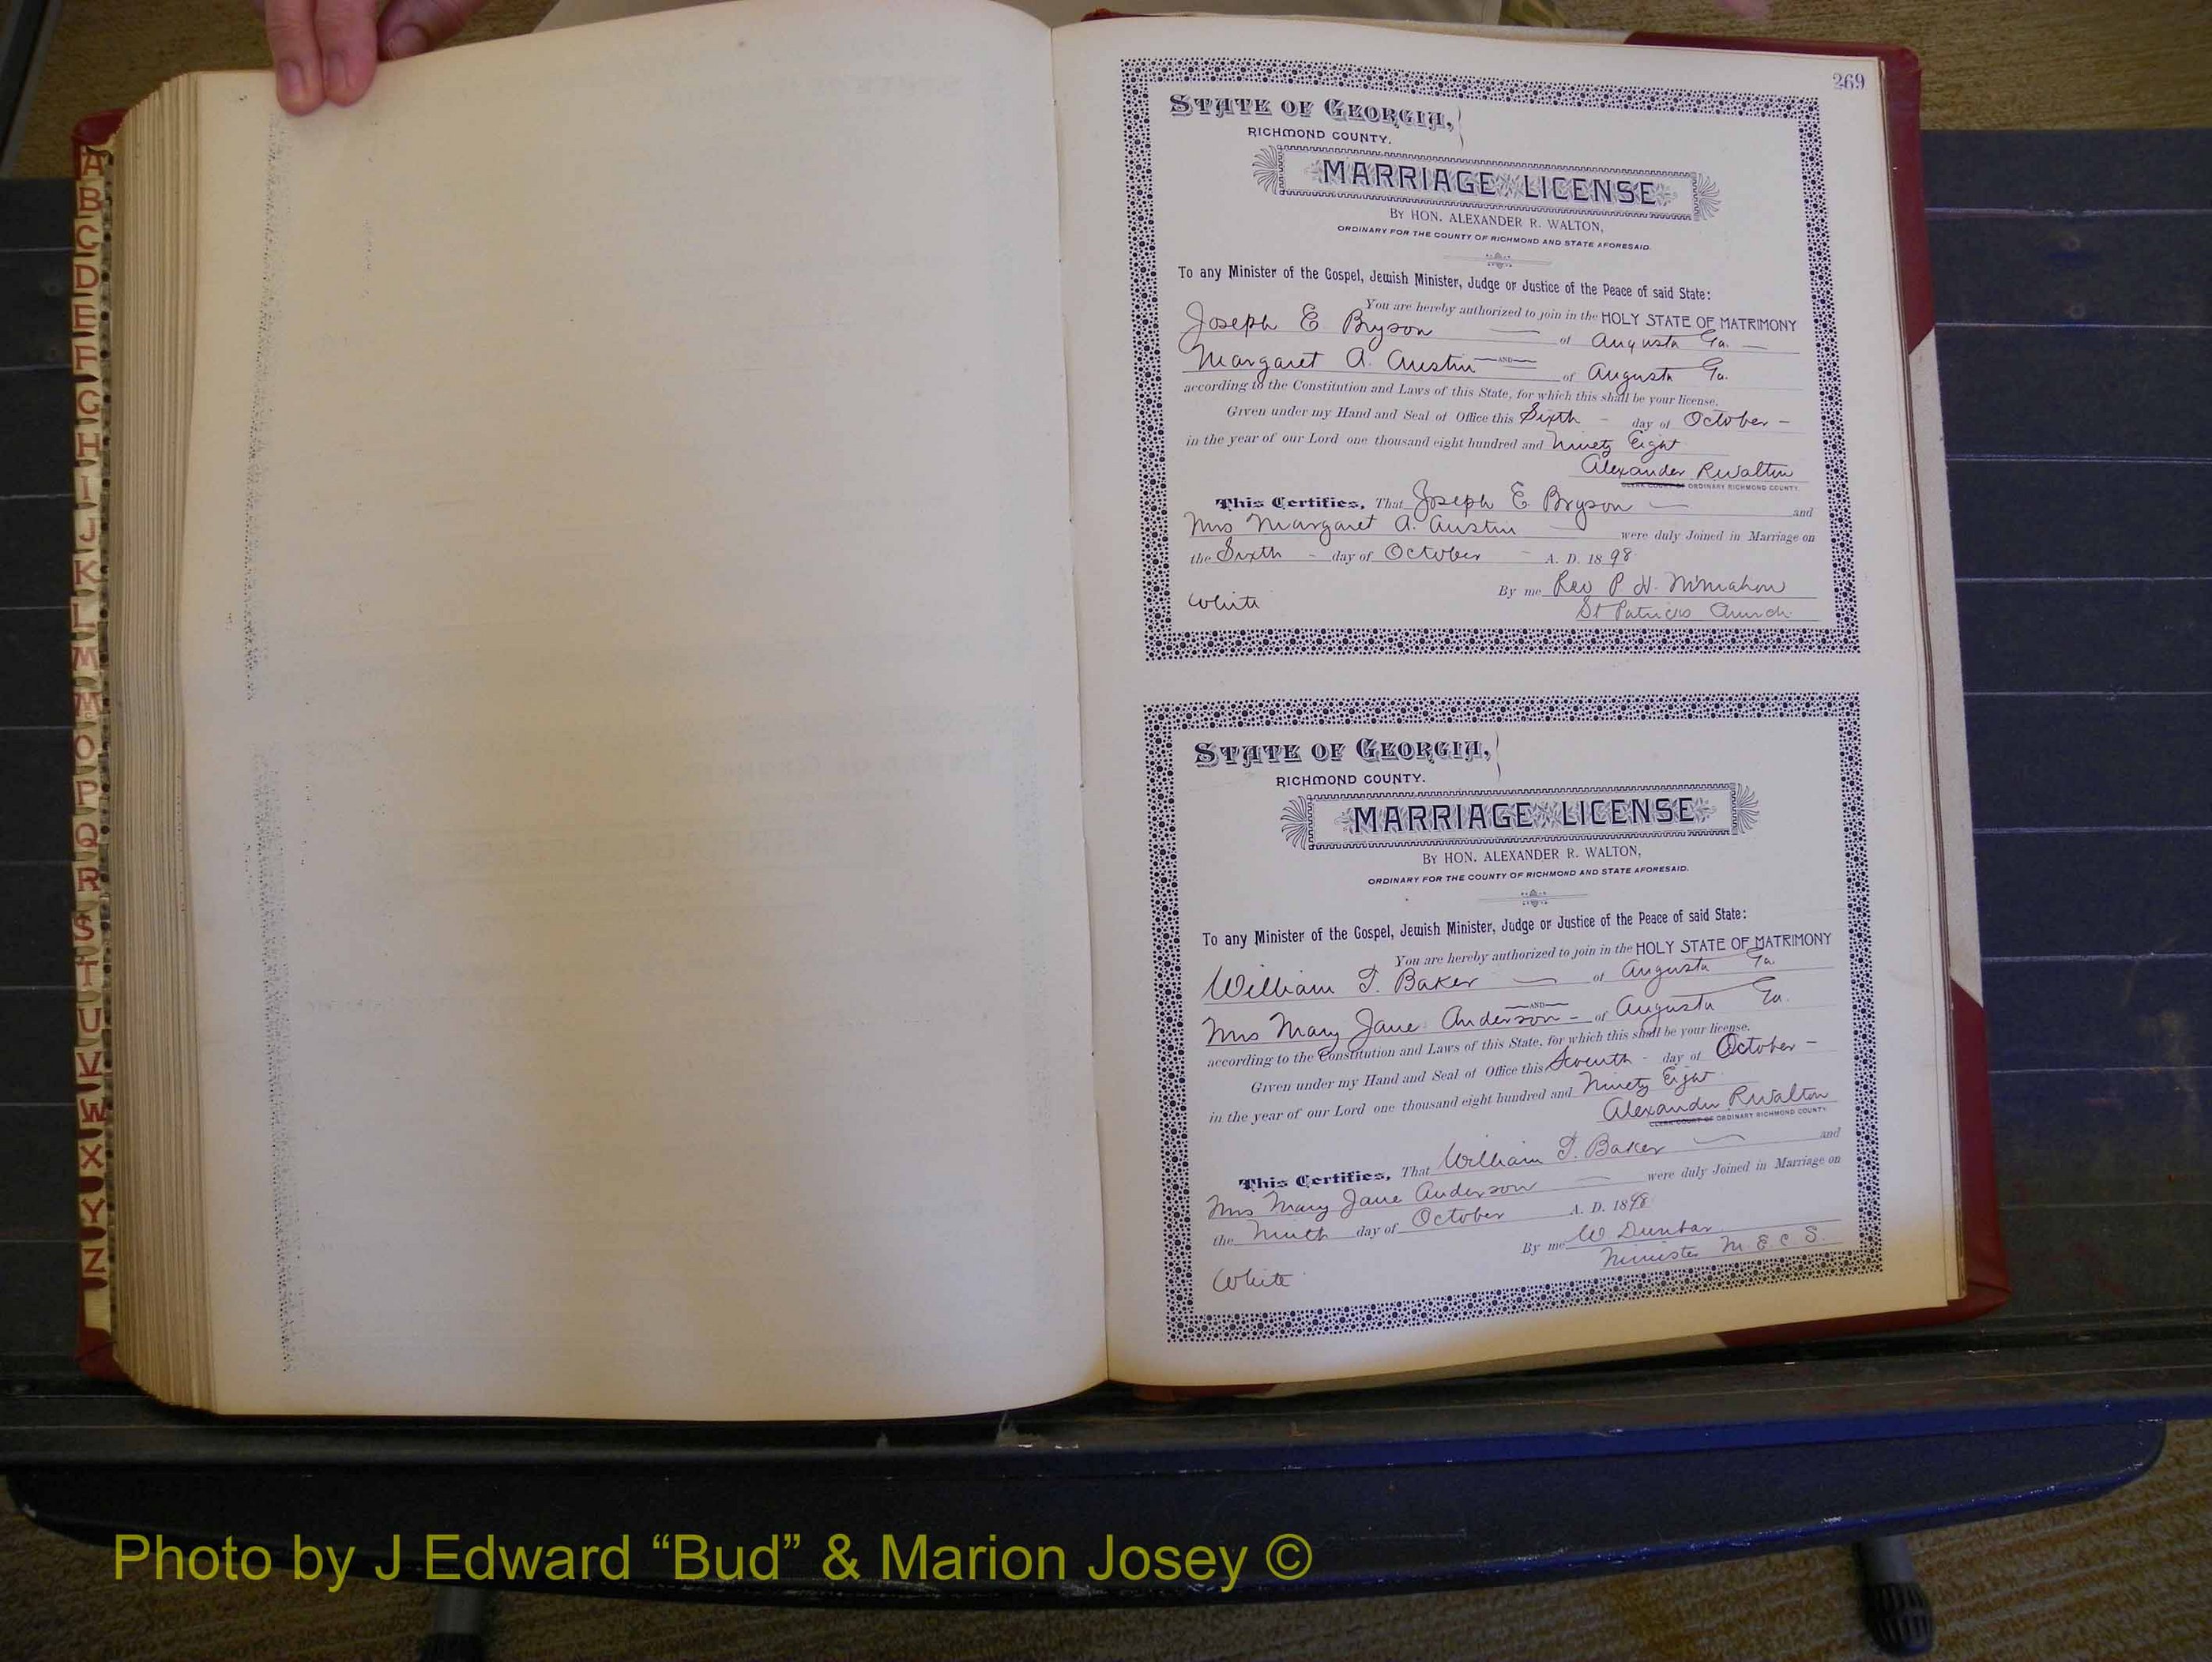 269
STATE OF GEORGIA,
RICHMOND COUNTY.
MARRIAGE LICENSE
BY HON. ALEXANDER R. WALTON,
ORDINARY FOR THE COUNTY OF RICHMOND AND STATE AFORESAID.
To any Minister of the Gospel, Jewish Minister, Judge or Justice of the Peace of said State:
You are hereby authorized to join in the HOLY STATE OF MATRIMONY
Joseph E Bryson — of Augusta Ga. —
AND
Margaret A. Austin of Augusta Ga.
according to the Constitution and Laws of this State, for which this shall be your license.
Given under my Hand and Seal of Office this Sixth - day of October -
in the year of our Lord one thousand eight hundred and Ninety Eight
Alexander R Walton
CLERK COURT OF ORDINARY RICHMOND COUNTY.
This Certifies, That Joseph E. Bryson — and
Mrs Margaret A. Austin were duly Joined in Marriage on
the Sixth - day of October - A. D. 1898
By me Rev P H. McMahon
White
St Patricks Church
STATE OF GEORGIA,
RICHMOND COUNTY.
MARRIAGE LICENSE
BY HON. ALEXANDER R. WALTON,
ORDINARY FOR THE COUNTY OF RICHMOND AND STATE AFORESAID.
To any Minister of the Gospel, Jewish Minister, Judge or Justice of the Peace of said State:
You are hereby authorized to join in the HOLY STATE OF MATRIMONY
William T. Baker — of Augusta Ga
AND
Mrs Mary Jane Anderson - of Augusta Ga.
according to the Constitution and Laws of this State, for which this shall be your license.
Given under my Hand and Seal of Office this Seventh - day of October -
in the year of our Lord one thousand eight hundred and Ninety Eight
Alexander R Walton
CLERK COURT OF ORDINARY RICHMOND COUNTY
This Certifies, That William T. Baker — and
Mrs Mary Jane Anderson — were duly Joined in Marriage on
the Ninth day of October A. D. 1898
By me W Dunbar
Minister M. E. C. S.
White
A
B
C
D
E
F
G
H
I
J
K
L
M
Mc
O
P
Q
R
S
T
U
V
W
X
Y
Z
Photo by J Edward “Bud” & Marion Josey ©